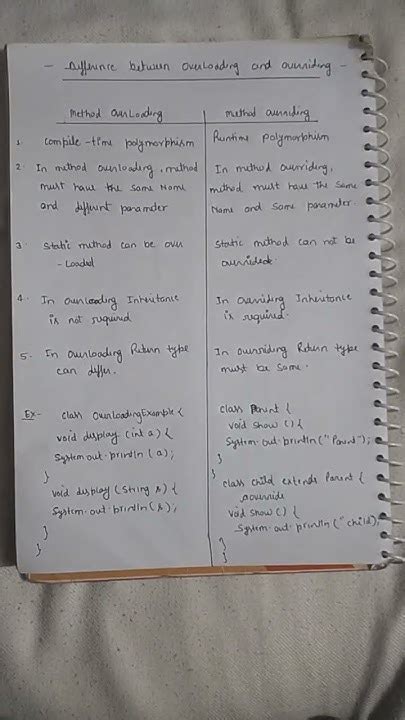 - Difference between overloading and overriding -
Method Overloading
method overriding
1. Compile-time polymorphism
Runtime Polymorphism
2. In method overloading, method
must have the same Name
and different parameter
In method overriding,
method must have the same
Name and same parameter.
3. Static method can be over
-Loaded
Static method can not be
overrided.
4. In overloading Inheritance
is not required
In overriding Inheritance
is required.
5. In overloading Return type
can differ.
In overriding Return type
must be same.
Ex- class OverloadingExample {
void display (int a) {
System.out.println (a);
}
void display (String s) {
System.out.println (s);
}
}
class Parent {
void show () {
System.out.println ("Parent");
}
}
class child extends Parent {
@override
void show () {
System.out.println ("child);
}
}